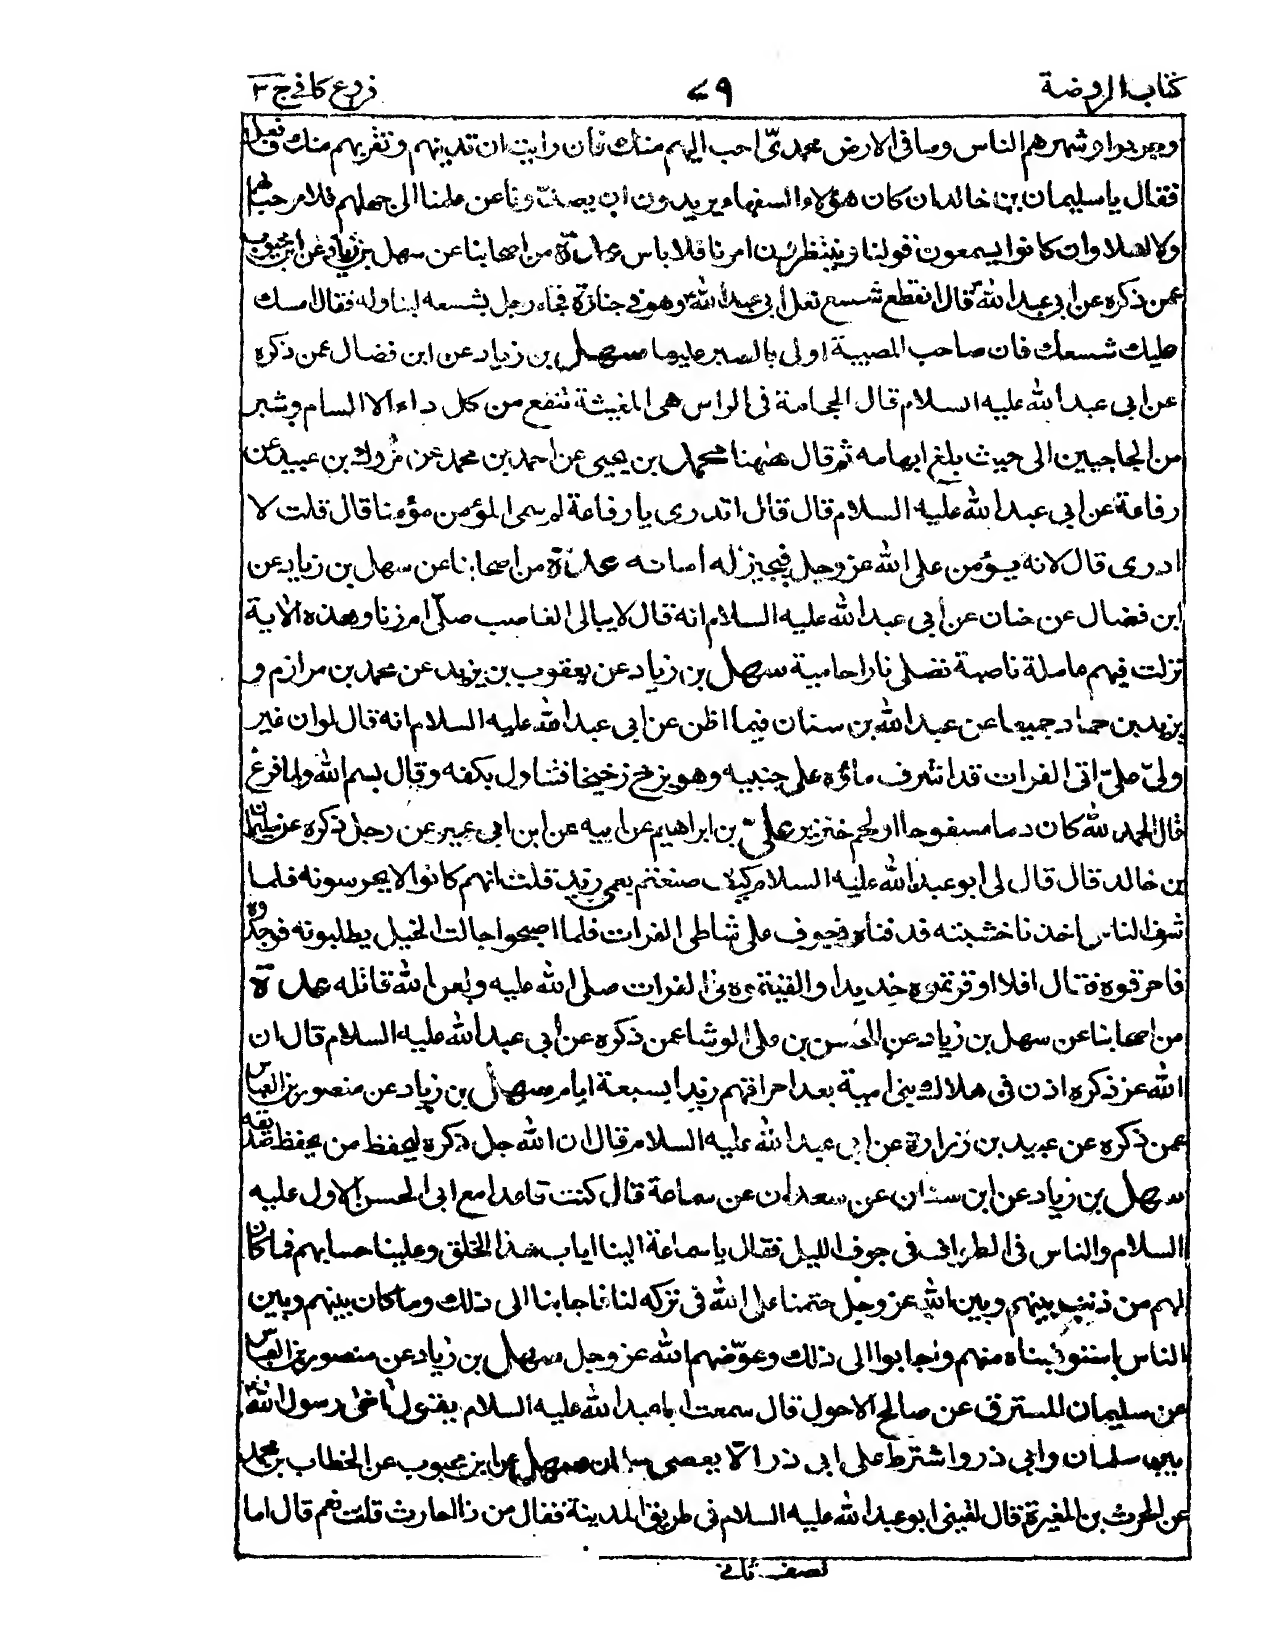 كتاب الروضة ٧٩ فروع كافى ج ٣
وجردوا وشهرهم الناس وما فى الارض محمدىّ احب اليهم منك فان رايت ان تدنيهم وتقربهم منك فافعل
فقال يا سليمان بن خالد ان كان هؤلاء السفهاء يريدون ان يصدّونا عن علمنا الى جهلهم فلا مرحبا بهم
ولا اهلا وان كانوا يسمعون قولنا وينتظرون امرنا فلا باس عدّة من اصحابنا عن سهل بن زياد عن ابن محبوب
عمن ذكره عن ابى عبد الله ع قال انقطع شسع نعل ابى عبد الله ع وهو فى جنازة فجاء رجل بشسعه ليناوله فقال امسك
عليك شسعك فان صاحب المصيبة اولى بالصبر عليها سهل بن زياد عن ابن فضال عمن ذكره
عن ابى عبد الله عليه السلام قال الحجامة فى الراس هى المغيثة تنفع من كل داء الا السام وشبر
من الحاجبين الى حيث بلغ ابهامه ثم قال ههنا محمد بن يحيى عن احمد بن محمد عن مروك بن عبيد عن
رفاعة عن ابى عبد الله عليه السلام قال قال اتدرى يا رفاعة لم سمى المؤمن مؤمنا قال قلت لا
ادرى قال لانه يؤمن على الله عز وجل فيجيز له امانه عدّة من اصحابنا عن سهل بن زياد عن
ابن فضال عن حنان عن ابى عبد الله عليه السلام انه قال لا يبالى الناصب صلّى ام زنا وهذه الاية
نزلت فيهم عاملة ناصبة تصلى نارا حامية سهل بن زياد عن يعقوب بن يزيد عن محمد بن مرازم و
يزيد بن حماد جميعا عن عبد الله بن سنان فيما اظن عن ابى عبد الله عليه السلام انه قال لو ان غير
ولىّ علىّ اتى الفرات قد اشرف ماؤه على جنبيه وهو يزخ زخيخا فتناول بكفه وقال بسم الله ولما فرغ
قال الحمد لله كان دما مسفوحا او لحم خنزير علىّ بن ابراهيم عن ابيه عن ابن ابى عمير عن رجل ذكره عن سليمان
بن خالد قال قال لى ابو عبد الله عليه السلام كيف صنعتم بعمى زيد قلت انهم كانوا لا يحرسونه فلما
شف الناس اخذنا خشبته فدفناه فى جرف على شاطئ الفرات فلما اصبحوا جالت الخيل يطلبونه فوجدوه
فاحرقوه فقال افلا اوقرتموه حديدا والقيتموه فى الفرات صلى الله عليه ولعن الله قاتله عدة
من اصحابنا عن سهل بن زياد عن الحسن بن على الوشا عمن ذكره عن ابى عبد الله عليه السلام قال ان
الله عز ذكره اذن فى هلاك بنى امية بعد احراقهم زيدا بسبعة ايام سهل بن زياد عن منصور بن العباس
عمن ذكره عن عبيد بن زرارة عن ابى عبد الله عليه السلام قال ان الله جل ذكره ليحفظ من يحفظ صديقه
سهل بن زياد عن ابن سنان عن سعدان عن سماعة قال كنت قاعدا مع ابى الحسن الاول عليه
السلام والناس فى الطواف فى جوف الليل فقال يا سماعة الينا اياب هذا الخلق وعلينا حسابهم فما كان
لهم من ذنب بينهم وبين الله عز وجل حتمنا على الله فى تركه لنا فاجابنا الى ذلك وما كان بينهم وبين
الناس استوهبناه منهم واجابوا الى ذلك وعوّضهم الله عز وجل سهل بن زياد عن منصور بن العباس
عن سليمان المسترق عن صالح الاحول قال سمعت ابا عبد الله عليه السلام يقول اخى رسول الله
بين سلمان وابى ذر واشترط على ابى ذر الّا يعصى سلمان سهل عن ابن محبوب عن الخطاب بن محمد
عن الحرث بن المغيرة قال لقينى ابو عبد الله عليه السلام فى طريق المدينة فقال من ذا الحارث قلت نعم قال اما
نصف ثانى